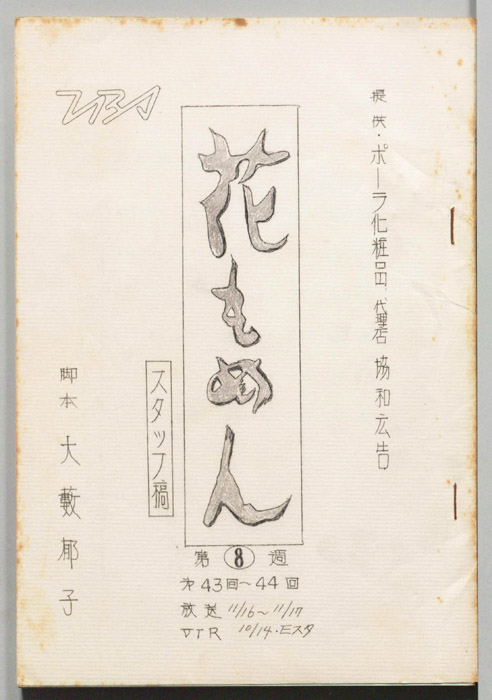 提供・ポーラ化粧品 代理店 協和広告
TBS
花もめん
スタッフ稿
脚本 大藪郁子
第⑧週
第43回〜44回
放送 11/16〜11/17
VTR 10/14・Eスタ